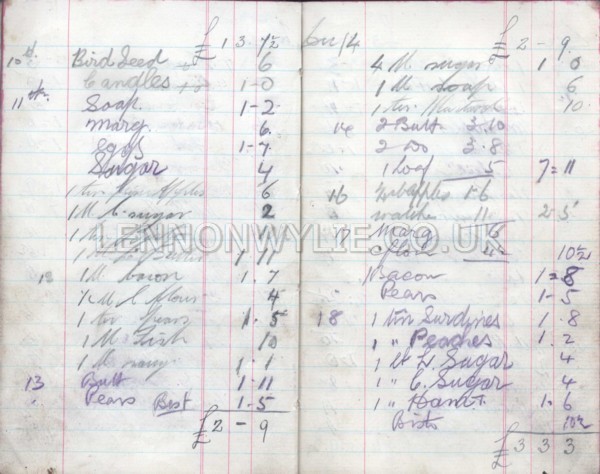 £ 1 3. 7½
10th Bird Seed 6
Candles 1-0
11th Soap 1-2
Marg. 6
Eggs 1-7
Sugar 4
1 tin Apples 6
1 M C. sugar 2
1
1 1-11
13 1 M bacon 1.7
½ M C flour 4
1 tin Pears 1.5
1 M Fish 10
1 M 1.1
13 Butt 1-11
" Pears Best 1-5
£2-9
£2-9.
4 M sugar 1 0
1 M soap 6
1 tin 10
14 2 Butt 3.10
2 Do 3.8
1 loaf 5 7=11
16 apples 1-6
matches 11 2-5
17 Marg 6
10½
Bacon 1=8
" Pears 1-5
18 1 tin Sardines 1.8
1 " Peaches 1.2
1 L. Sugar 4
1 " C. Sugar 4
1 " Ham 1-6
Bisto 10½
£3 3 3
LENNONWYLIE.CO.UK